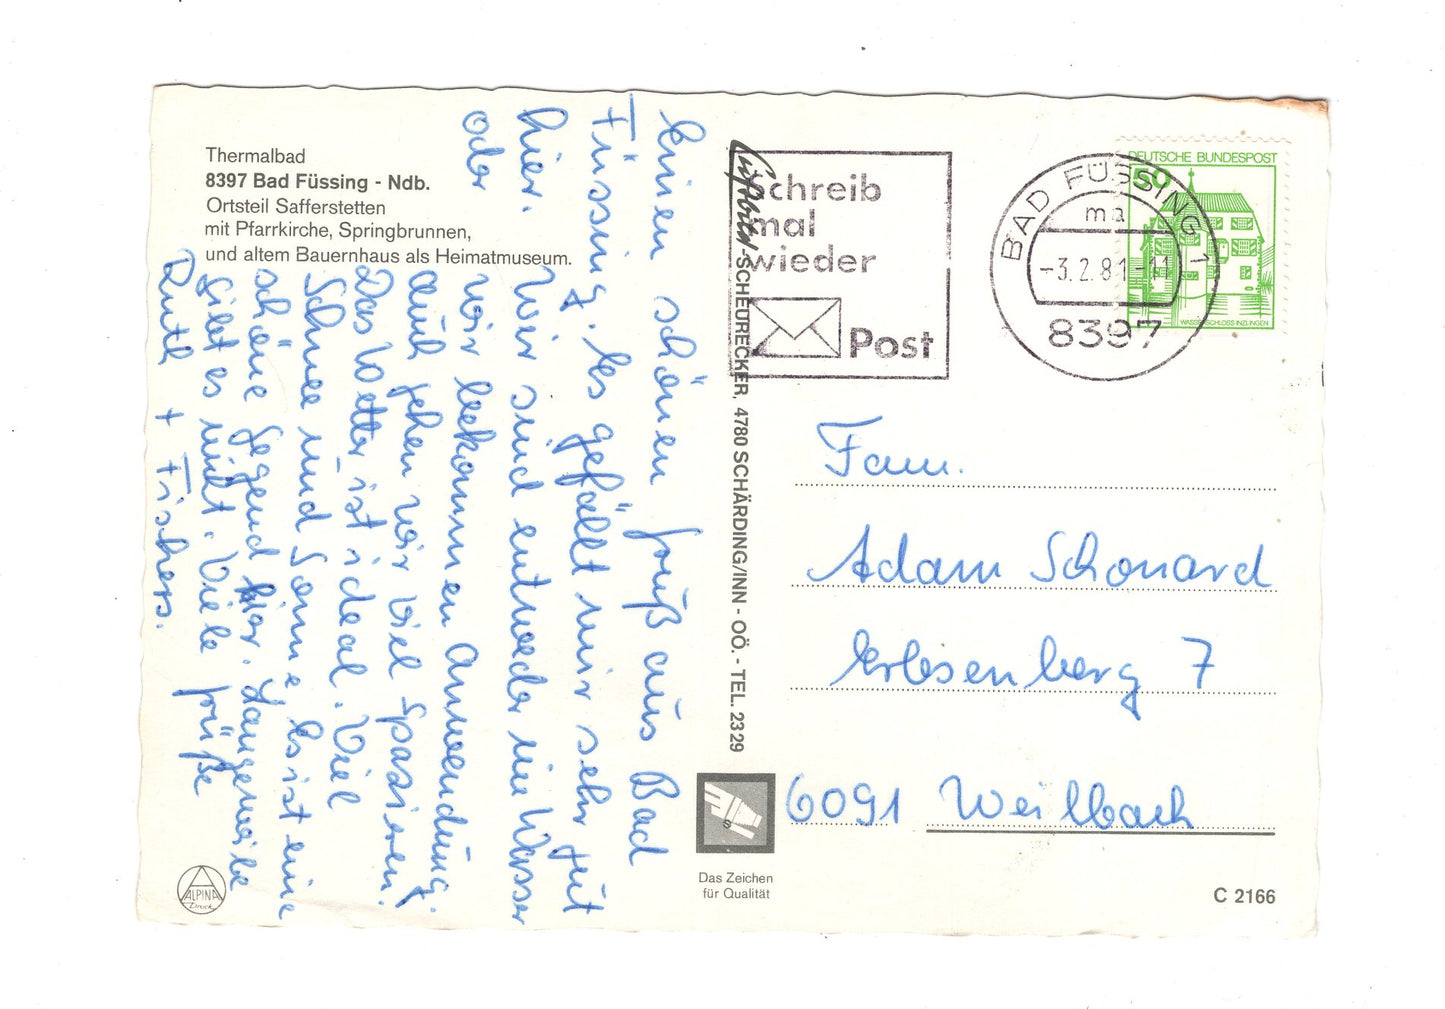 Thermalbad
8397 Bad Füssing - Ndb.
Ortsteil Safferstetten
mit Pfarrkirche, Springbrunnen,
und altem Bauernhaus als Heimatmuseum.
Einen schönen Gruß aus Bad
Füssing. Es gefällt mir sehr gut
hier. Wir sind entweder im Wasser
oder wir bekommen Anwendung.
auch gehen wir viel spazieren.
Das Wetter ist ideal. Viel
Schnee und Sonne. Es ist eine
schöne Gegend hier. Langeweile
gibt es nicht. Viele Grüße
Ruth + Fischers.
ALPINA
Druck
Luftbild-SCHEURECKER, 4780 SCHÄRDING/INN - OÖ. - TEL. 2329
Das Zeichen
für Qualität
Schreib
mal
wieder
Post
BAD FÜSSING 1
ma
-3.2.81-11
8397
DEUTSCHE BUNDESPOST
50
WASSERSCHLOSS INZLINGEN
Fam.
Adam Schonard
Erbsenberg 7
6091 Weilbach
C 2166